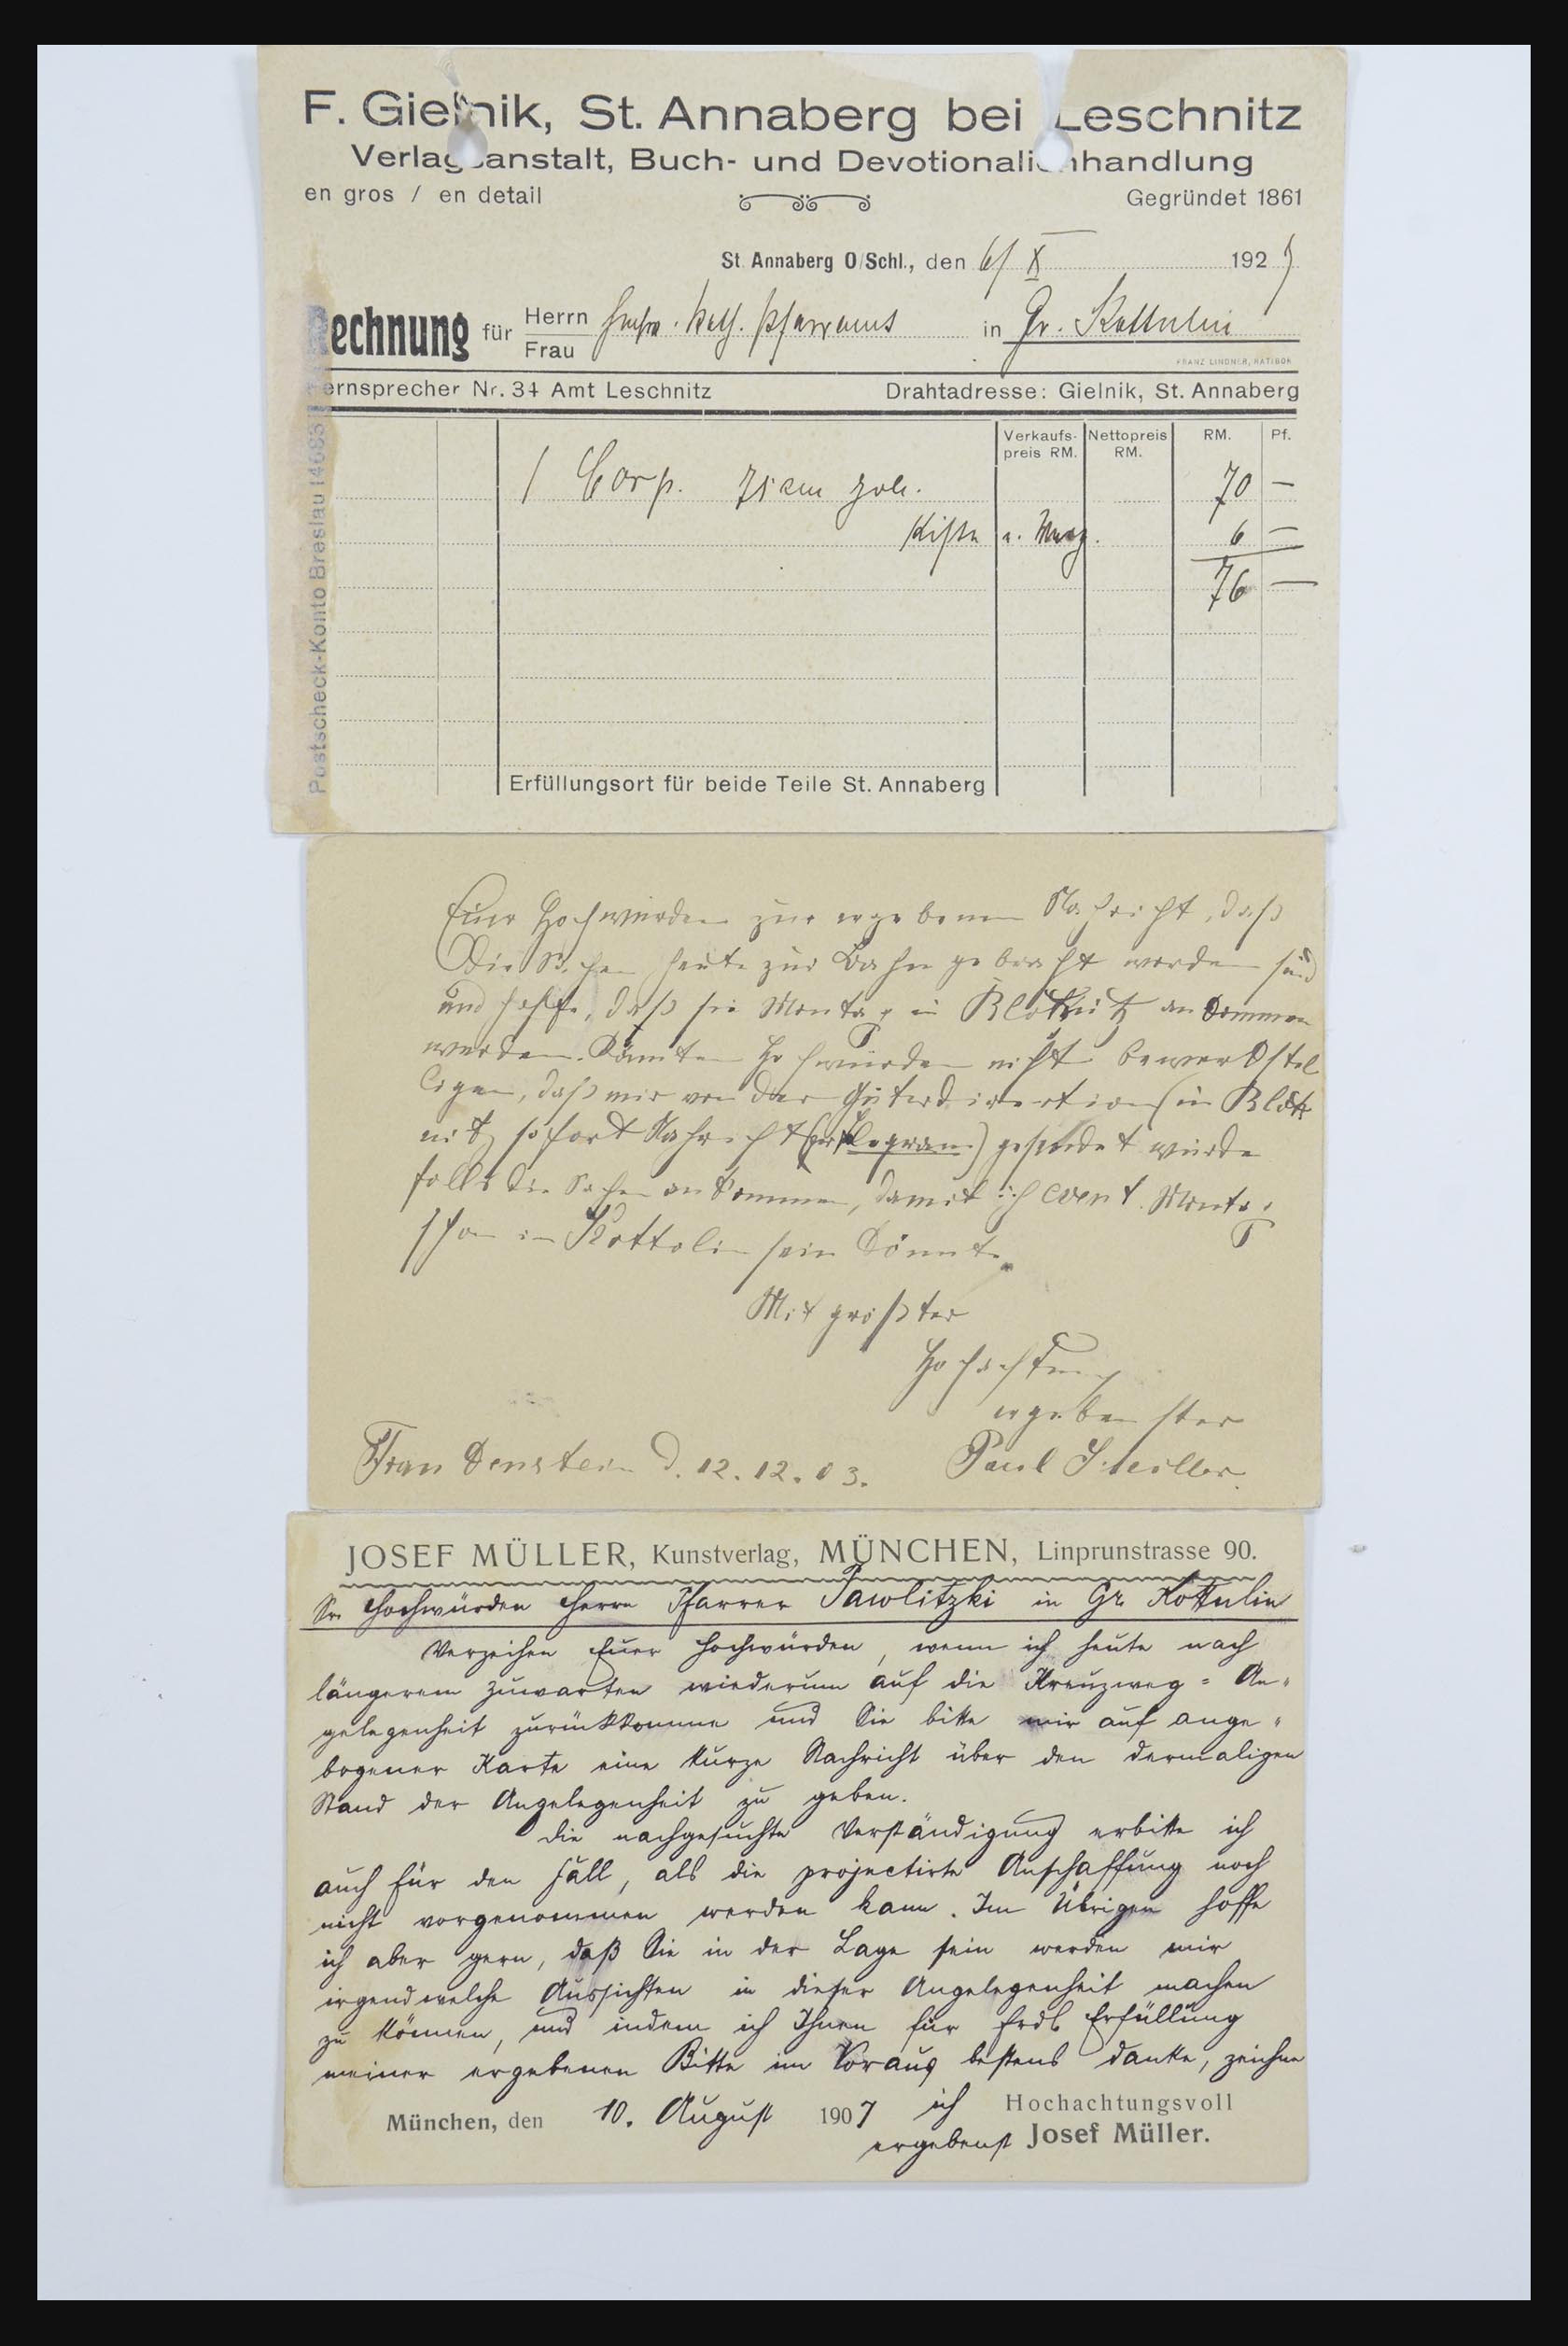 F. Gielnik, St. Annaberg bei Leschnitz
Verlagsanstalt, Buch- und Devotionalienhandlung
en gros / en detail
Gegründet 1861
St. Annaberg O/Schl., den 6/ X 192
Rechnung für Herrn Frau Kath. Pfarramt in Gr. Kottulin
FRANZ LINDNER, RATIBOR
Fernsprecher Nr. 34 Amt Leschnitz Drahtadresse: Gielnik, St. Annaberg
Verkaufs-preis RM. Nettopreis RM. RM. Pf.
1 Corp. 75 cm 70 —
Kiste u. 6 —
76 —
Erfüllungsort für beide Teile St. Annaberg
Postscheck-Konto Breslau 14083
Euer Hochwürden zur ergebenen Nachricht, daß
die Sachen heute zur Bahn gebracht worden sind
und hoffe, daß sie Montag in Blottnitz ankommen
werden. Könnten Hochwürden nicht bewerkstel
ligen, daß mir von der Güterdirection in Blott
nitz sofort Nachricht (per Telegram.) gesendet würde
falls die Sachen ankommen, damit ich event. Montag
schon in Kottolin sein könnte.
Mit größter
Hochachtung
ergebenster
Frankenstein d. 12.12.03. Paul
JOSEF MÜLLER, Kunstverlag, MÜNCHEN, Linprunstrasse 90.
Sr. Hochwürden Herrn Pfarrer Pawlitzki in Gr. Kottulin
Verzeihen Euer Hochwürden, wenn ich heute nach
längerem Zuwarten wiederum auf die Kreuzweg = An=
gelegenheit zurückkomme und Sie bitte mir auf ange=
bogener Karte eine kurze Nachricht über den dermaligen
Stand der Angelegenheit zu geben.
Die nachgesuchte Verständigung erbitte ich
auch für den Fall, als die projectirte Anschaffung noch
nicht vorgenommen werden kann. Im Übrigen hoffe
ich aber gern, daß Sie in der Lage sein werden mir
irgendwelche Aussichten in dieser Angelegenheit machen
zu können, und indem ich Ihnen für frdl Erfüllung
meiner ergebenen Bitte im Voraus bestens danke, zeichne
München, den 10. August 1907 ich Hochachtungsvoll
ergebenst Josef Müller.